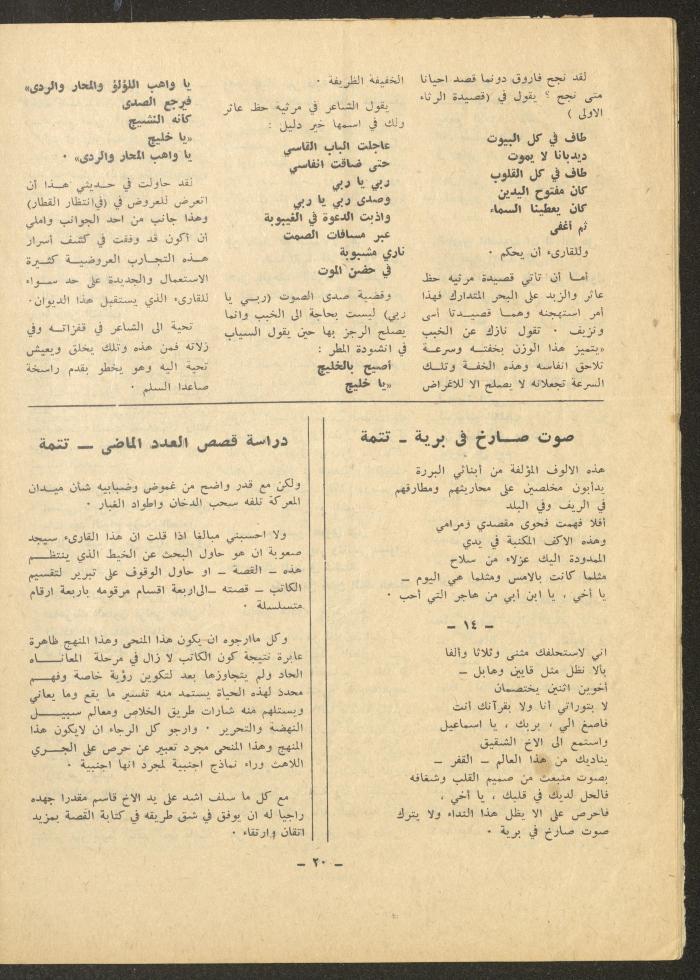 لقد نجح فاروق دونما قصد احيانا
متى نجح ؟ يقول في (قصيدة الرثاء
الاولى )
طاف في كل البيوت
ديدبانا لا يموت
طاف في كل القلوب
كان مفتوح اليدين
كان يعطينا السماء
ثم أغفى
وللقارىء أن يحكم .
أمـا أن تأتي قصيدة مرثيه حظ
عاثر والزبد على البحر المتدارك فهذا
أمر استهجنه وهمـا قصيـدتا أسى
ونزيف . تقول نازك عن الخبب
«يتميز هذا الوزن بخفتـه وسرعـة
تلاحق انفاسه وهذه الخفـة وتلـك
السرعة تجعلانه لا يصلح الا للاغراض
الخفيفة الظريفة .
يقول الشاعر في مرثيه حظ عاثر
ولك في اسمها خير دليل :
عاجلت الباب القاسي
حتى ضاقت انفاسي
ربي يا ربي
وصدى ربي يا ربي
واذبت الدعوة في الغيبوبة
عبر مسافات الصمت
ناري مشبوبة
في حضن الموت
وقضية صدى الصوت (ربـي يا
ربي) ليست بحاجة الى الخبب وانما
يصلح الرجز بها حين يقول السياب
في انشودة المطر :
أصيح بالخليج
«يا خليج
يا واهب اللؤلؤ والمحار والردى»
فيرجع الصدى
كأنه النشيج
«يا خليج
يا واهب المحار والردى» .
لقد حاولت في حـديثي هـذا أن
اتعرض للعروض في (في انتظار القطار)
وهذا جانب من احد الجوانب واملي
أن أكون قد وفقت في كشف أسرار
هـذه التجارب العروضيـة كثيرة
الاستعمال والجديدة على حد سـواء
للقارىء الذي يستقبل هذا الديوان.
تحية الى الشاعر في قفزاتـه وفي
زلاته فمن هذه وتلك يخلق ويعيش
تحية اليه وهو يخطو بقدم راسخة
صاعدا السلم .
صوت صـارخ في برية ـ تتمة
هذه الالوف المؤلفة من أبنائي البررة
يدأبون مخلصين على محاريثهم ومطارقهم
في الريف وفي البلد
أفلا فهمت فحوى مقصدي ومرامي
وهذه الاكف المكنبة في يدي
الممدودة اليك عزلاء من سلاح
مثلما كانت بالامس ومثلما هي اليوم ـ
يا أخي ، يا ابن أبي من هاجر التي أحب .
ـ ١٤ ـ
اني لاستحلفك مثنى وثلاثا وألفا
بألا نظل مثل قايين وهابل ـ
أخوين اثنين يختصمان
لا بتوراتي أنا ولا بقرآنك أنت
فاصغ الي ، بربك ، يا اسماعيل
واستمع الى الاخ الشقيق
يناديك من هذا العالم ـ القفر ـ
بصوت منبعث من صميم القلب وشغافه
فالحل لديك في قلبك ، يا أخي ،
فاحرص على الا يظل هذا النداء ولا يترك
صوت صارخ في برية .
دراسة قصص العدد الماضي ـ تتمة
ولكن مع قدر واضح من غموض وضبابيه شأن ميـدان
المعركة تلفه سحب الدخان واطواد الغبار .
ولا احسبني مبالغا اذا قلت ان هذا القارىء سيجد
صعوبة ان هو حاول البحث عن الخيط الذي ينتظـم
هذه ـ القصة ـ او حاول الوقوف على تبرير لتقسيم
الكاتب ـ قصته ـ الى اربعة اقسام مرقومه بأربعة ارقام
متسلسلة .
وكل ما ارجوه ان يكون هذا المنحى وهذا المنهج ظاهرة
عابرة نتيجة كون الكاتب لا زال في مرحلة المعانـاه
الحاد ولم يتجاوزها بعد لتكوين رؤية خاصة وفهـم
محدد لهذه الحياة يستمد منه تفسير ما يقع وما يعاني
ويستلهم منه شارات طريق الخلاص ومعالم سبيـل
النهضة والتحرير . وارجو كل الرجاء ان لايكون هذا
المنهج وهذا المنحى مجرد تعبير عن حرص على الجـري
اللاهث وراء نماذج اجنبية لمجرد انها اجنبية .
مع كل ما سلف اشد على يد الاخ قاسم مقدرا جهده
راجيا له ان يوفق في شق طريقه في كتابة القصة بمزيد
اتقان وارتقاء .
ـ ٢٠ ـ